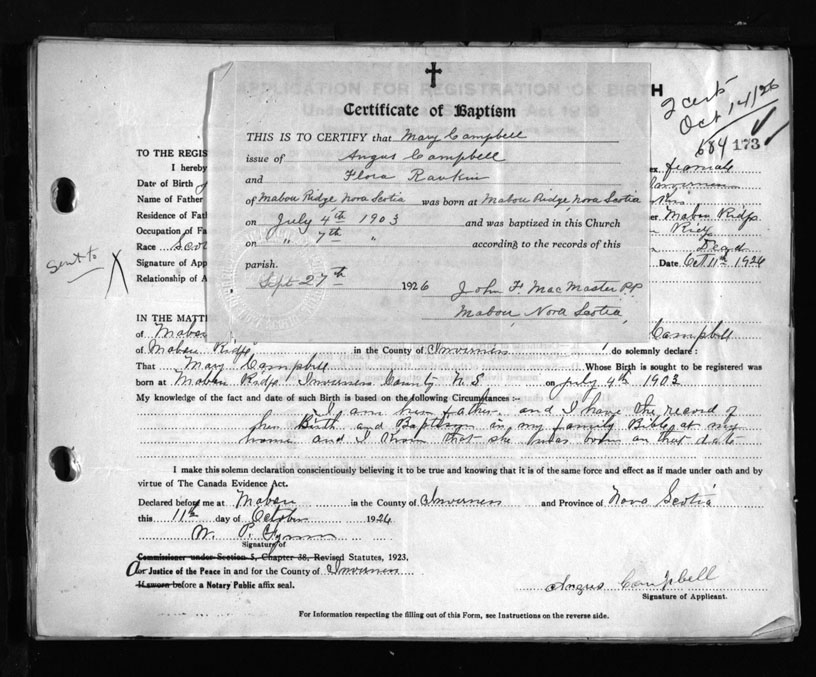 APPLICATION FOR REGISTRATION OF BIRTH
2 certs
Oct 14/26
684 173
✝
Certificate of Baptism
THIS IS TO CERTIFY that Mary Campbell
issue of Angus Campbell
and Flora Rankin
of Mabou Ridge Nova Scotia was born at Mabou Ridge, Nova Scotia
on July 4th 1903 and was baptized in this Church
on " 7th " according to the records of this
parish.
Sept 27th 1926 John F MacMaster P.P.
Mabou, Nova Scotia,
TO THE REGIS
I hereby
Date of Birth
Name of Father
Residence of Fat
Occupation of Fa
Race Scot
Signature of App
Relationship of A
ex. female
Inverness
Mabou Ridge
Ridge
Dead
Date Oct 11th 1926
sent to X
IN THE MATT
of Mabou Campbell
of Mabou Ridge in the County of Inverness do solemnly declare :
That Mary Campbell Whose Birth is sought to be registered was
born at Mabou Ridge Inverness County N.S on July 4th 1903
My knowledge of the fact and date of such Birth is based on the following Circumstances :-
I am her father and I have the record of
her Birth and Baptism in my family Bible at my
home and I know that she was born on that date
I make this solemn declaration conscientiously believing it to be true and knowing that it is of the same force and effect as if made under oath and by
virtue of The Canada Evidence Act.
Declared before me at Mabou in the County of Inverness and Province of Nova Scotia
this 11th day of October 1926
W. P.
Signature of
Commissioner under Section 5, Chapter 38, Revised Statutes, 1923,
or Justice of the Peace in and for the County of Inverness
If sworn before a Notary Public affix seal.
Angus Campbell
Signature of Applicant.
For Information respecting the filling out of this Form, see Instructions on the reverse side.